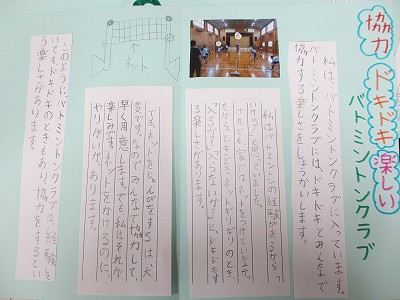 協力 ドキドキ 楽しい
バトミントンクラブ
私は、バトミントンクラブに入っています。
バトミントンクラブは、ドキドキとみんなで
協力する楽しさをしょうかいします。
私はバトミントンの経験があるから
けれども、家ではネットをつけていなか
たから、しあいのときネットギリギリのとき、
る楽しさがあります。
ネット
でも、ネットをじゅんびをするのは、大
変です。なのでみんなで協力して、
早く用意します。でも、私はそれが
楽しみです。ネットをかけるのに、
やりがいがあります。
このように、バトミントンクラブは、経験して
いてもドキドキのときもあり、協力をするとい
う楽しさがあります。